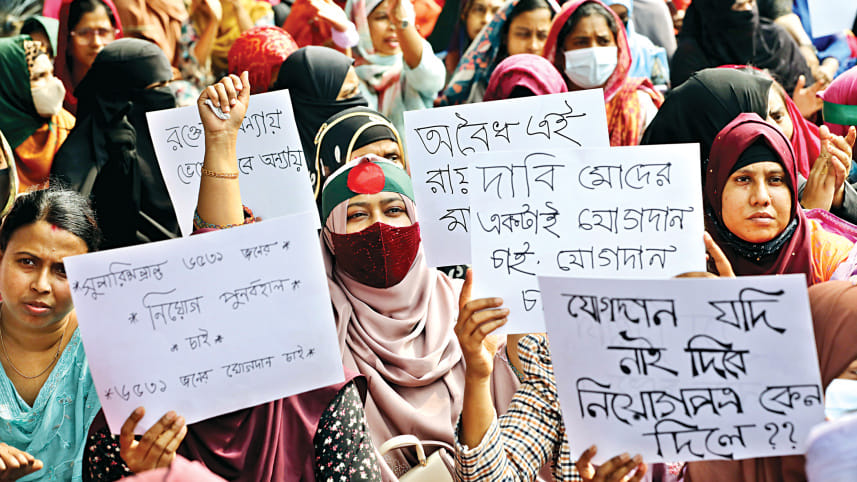 ন্যায়
অন্যায়
অবৈধ এই
রায়
দাবি মোদের
একটাই যোগদান
চাই. যোগদান
*সুপারিশপ্রাপ্ত ৬৫৩১ জনের *
* নিয়োগ পুনর্বহাল *
* চাই *
*৬৫৩১ জনের যোগদান চাই*
যোগদান যদি
নাই দিবি
নিয়োগপত্র কেন
দিলে ??